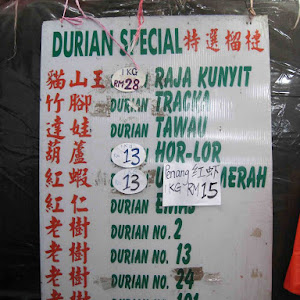 DURIAN SPECIAL 特選榴槤
貓山王 KG RM 28 RAJA KUNYIT
竹腳 DURIAN TRACKA
達娃 DURIAN TAWAU
葫蘆 13 HOR-LOR
紅蝦 13 Penang 红虾 KG RM 15 MERAH
紅仁 DURIAN EMAS
老樹 DURIAN NO. 2
老樹 DURIAN NO. 13
老樹 DURIAN NO. 24
老樹 DURIAN NO. 101